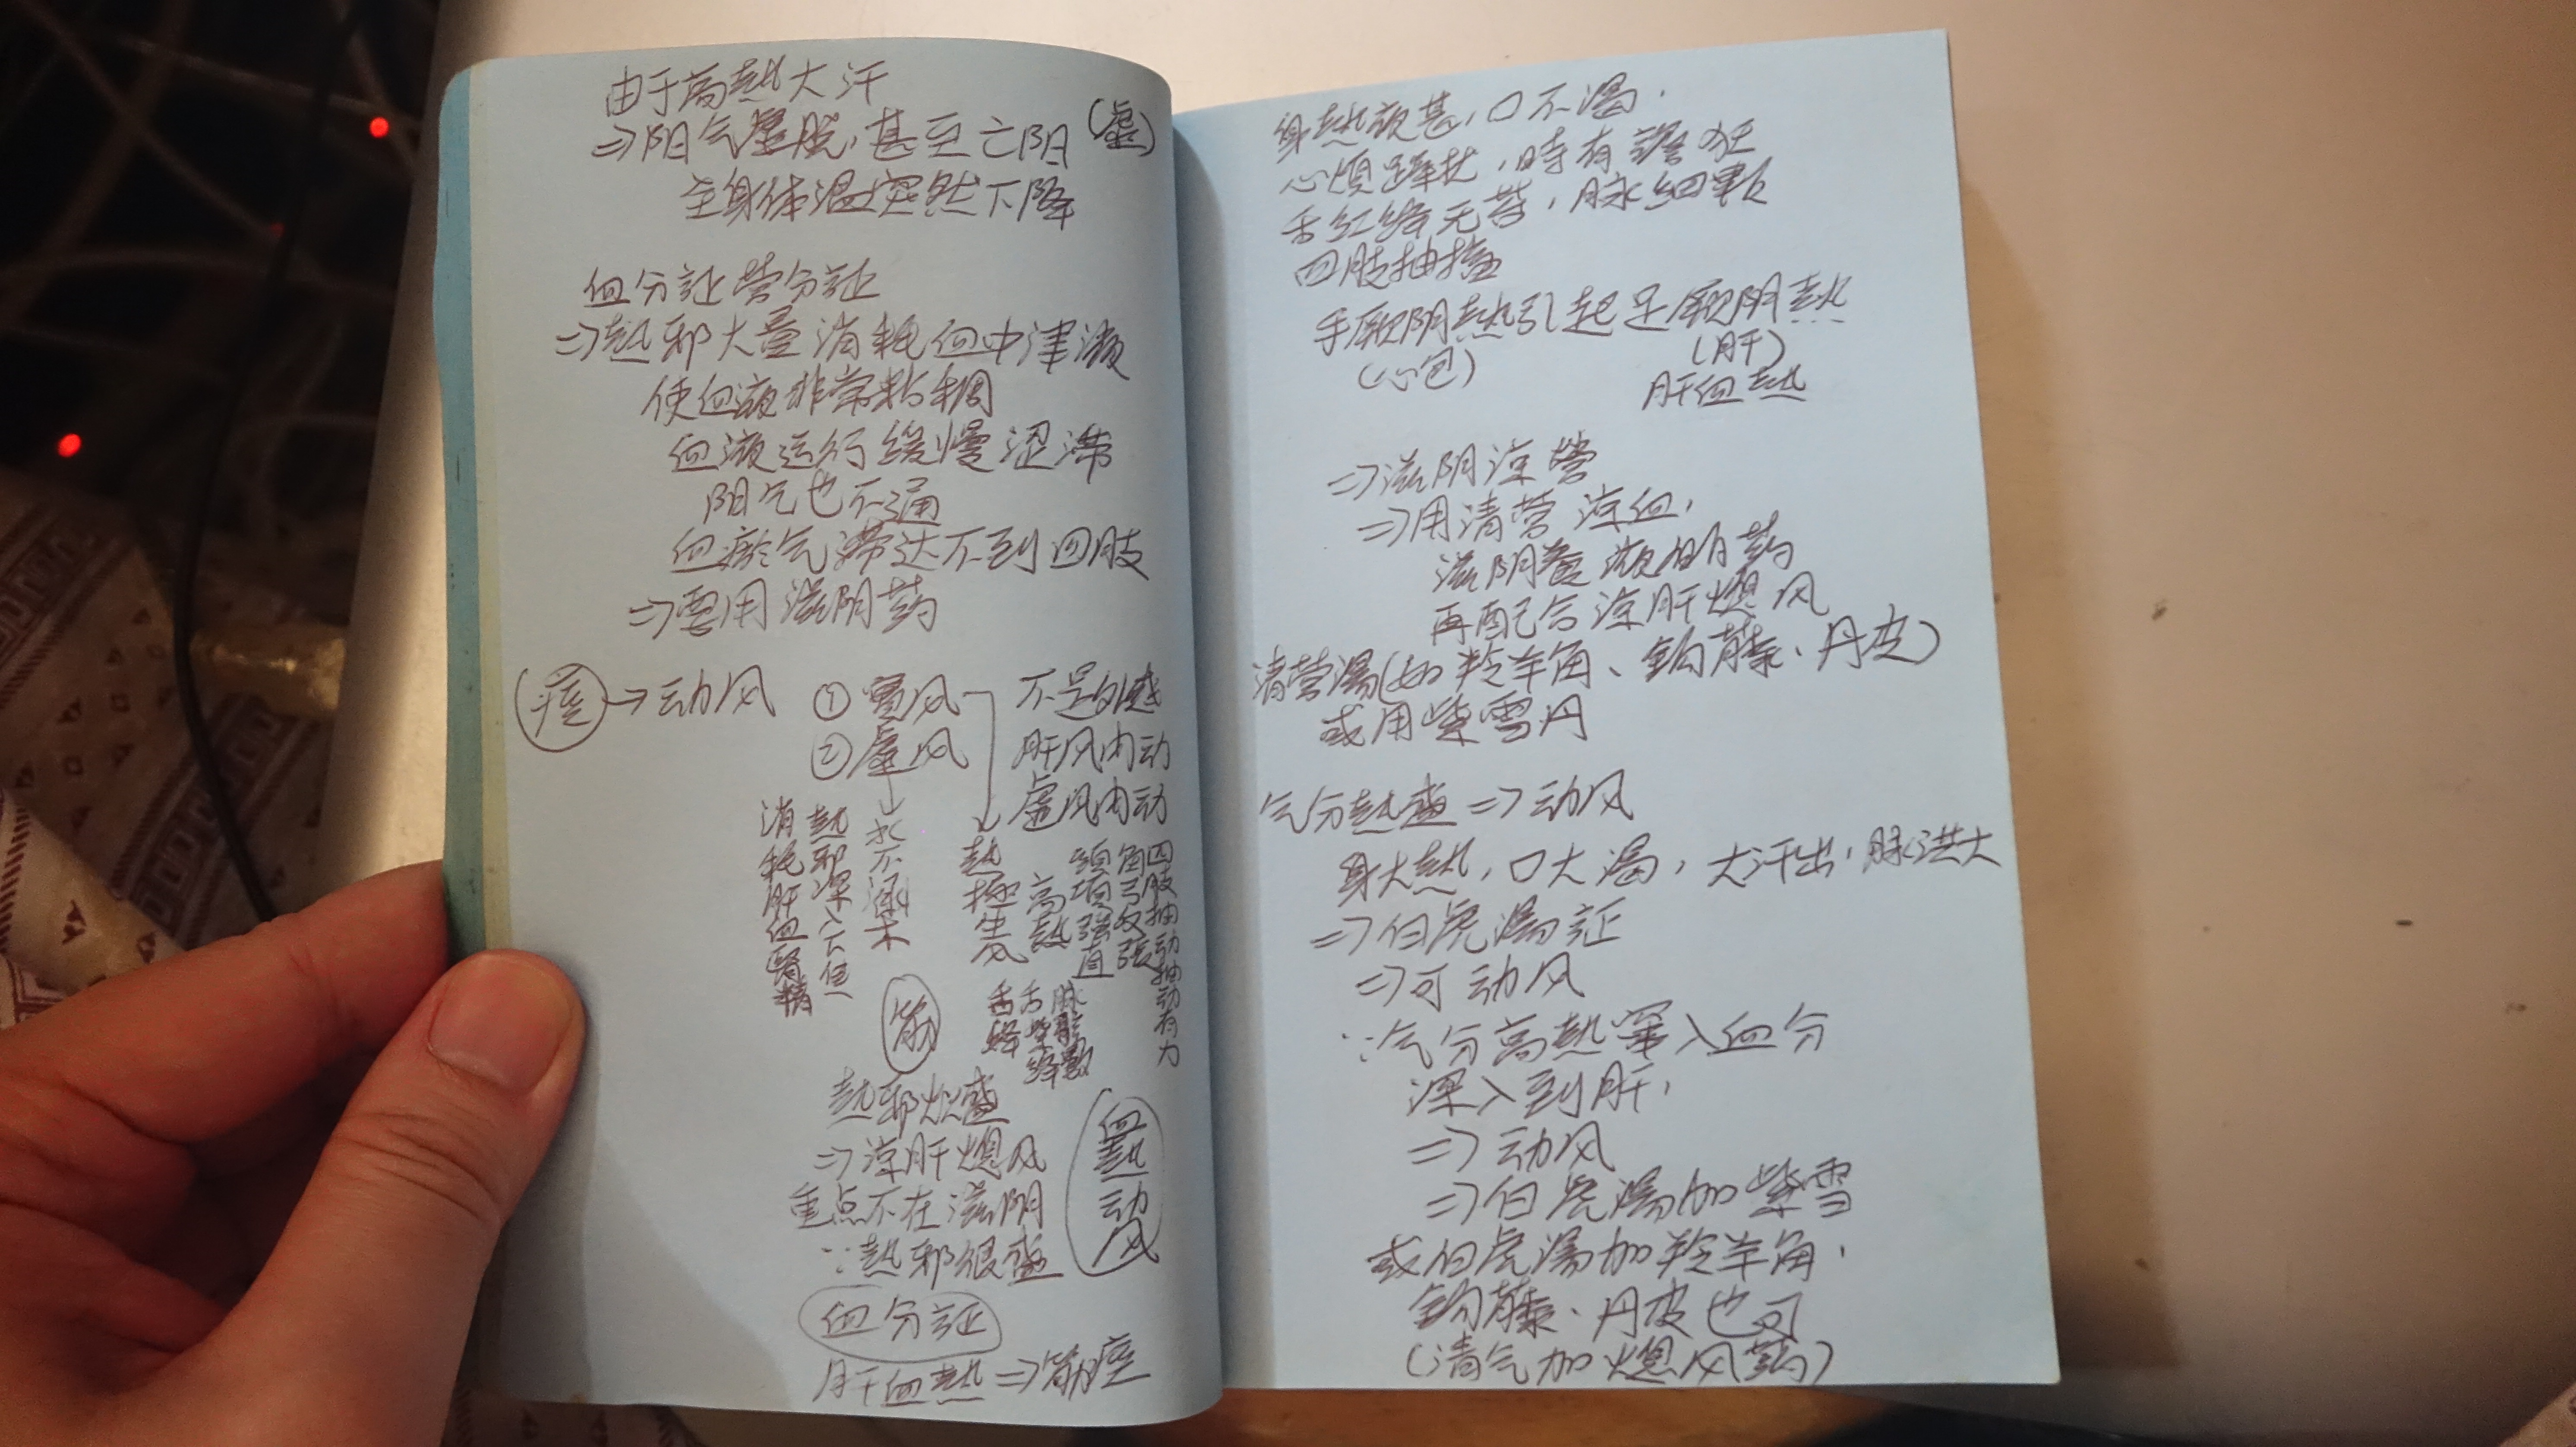 由于高熱大汗
⇒阳气虚脱,甚至亡阳(虚)
全身体温突然下降
血分証 营分証
⇒熱邪大量消耗血中津液
使血液非常粘稠
血液运行缓慢涩滞
阳气也不通
血瘀气滞达不到四肢
⇒要用滋阴药
痉→动风
①實风
②虚风
不是外感
肝风内动
虚风内动
水不涵木
熱邪深入下焦
消耗肝血腎精
熱極生风
高熱
頸項强直
角弓反張
四肢抽动抽动有力
筋
舌絳
舌紫絳
脉弦數
熱邪炽盛
⇒涼肝熄风
重点不在滋阴
∵熱邪很盛
血熱动风
血分証
肝血熱⇒筋痉
身熱夜甚,口不渴.
心煩躁扰,時有譫狂
舌红絳无苔,脉細數
四肢抽搐
手厥阴熱引起足厥阴熱
(心包)
(肝)
肝血熱
⇒滋阴涼營
⇒用清营涼血,
滋阴養液的药
再配合涼肝熄风
清营湯(如羚羊角、鈎藤、丹皮)
或用紫雪丹
气分熱盛⇒动风
身大熱,口大渴,大汗出,脉洪大
⇒白虎湯証
⇒可动风
∵气分高熱深入血分
深入到肝,
⇒动风
⇒白虎湯加紫雪
或白虎湯加羚羊角,
鈎藤、丹皮也可
(清气加熄风药)